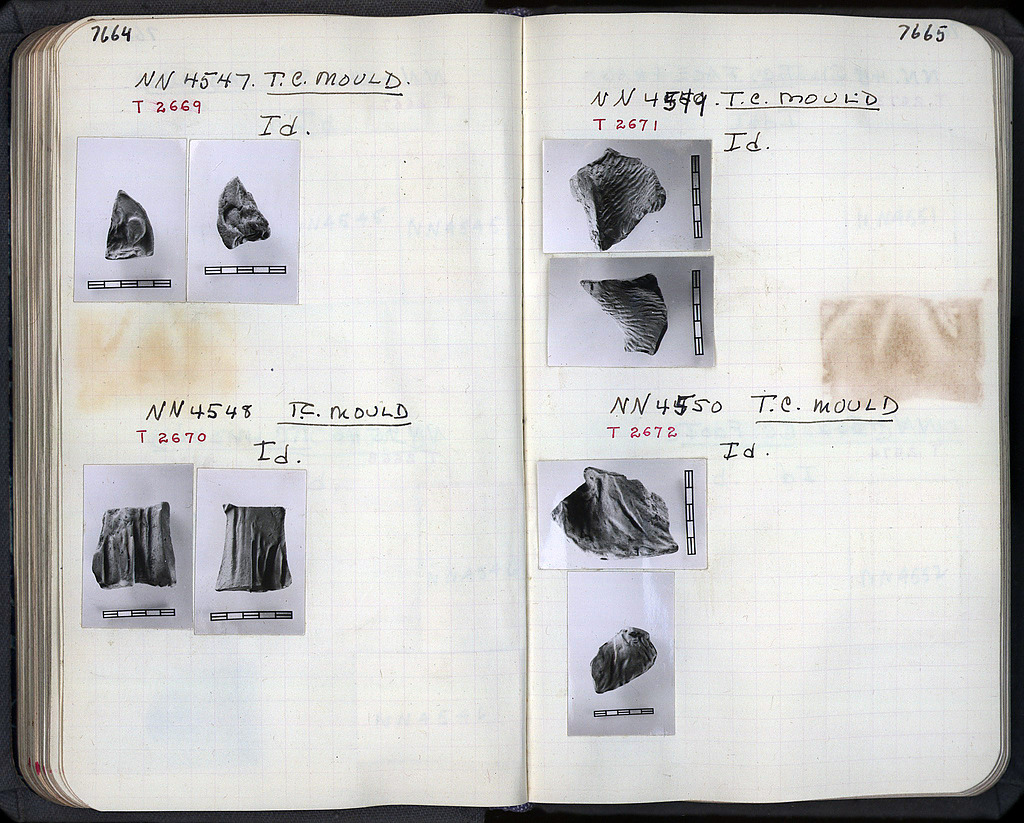 7664
NN 4547. T.C. MOULD.
T 2669
Id.
NN 4548 T.C. MOULD
T 2670
Id.
7665
NN 4549. T.C. MOULD
T 2671
Id.
NN 4550 T.C. MOULD
T 2672
Id.